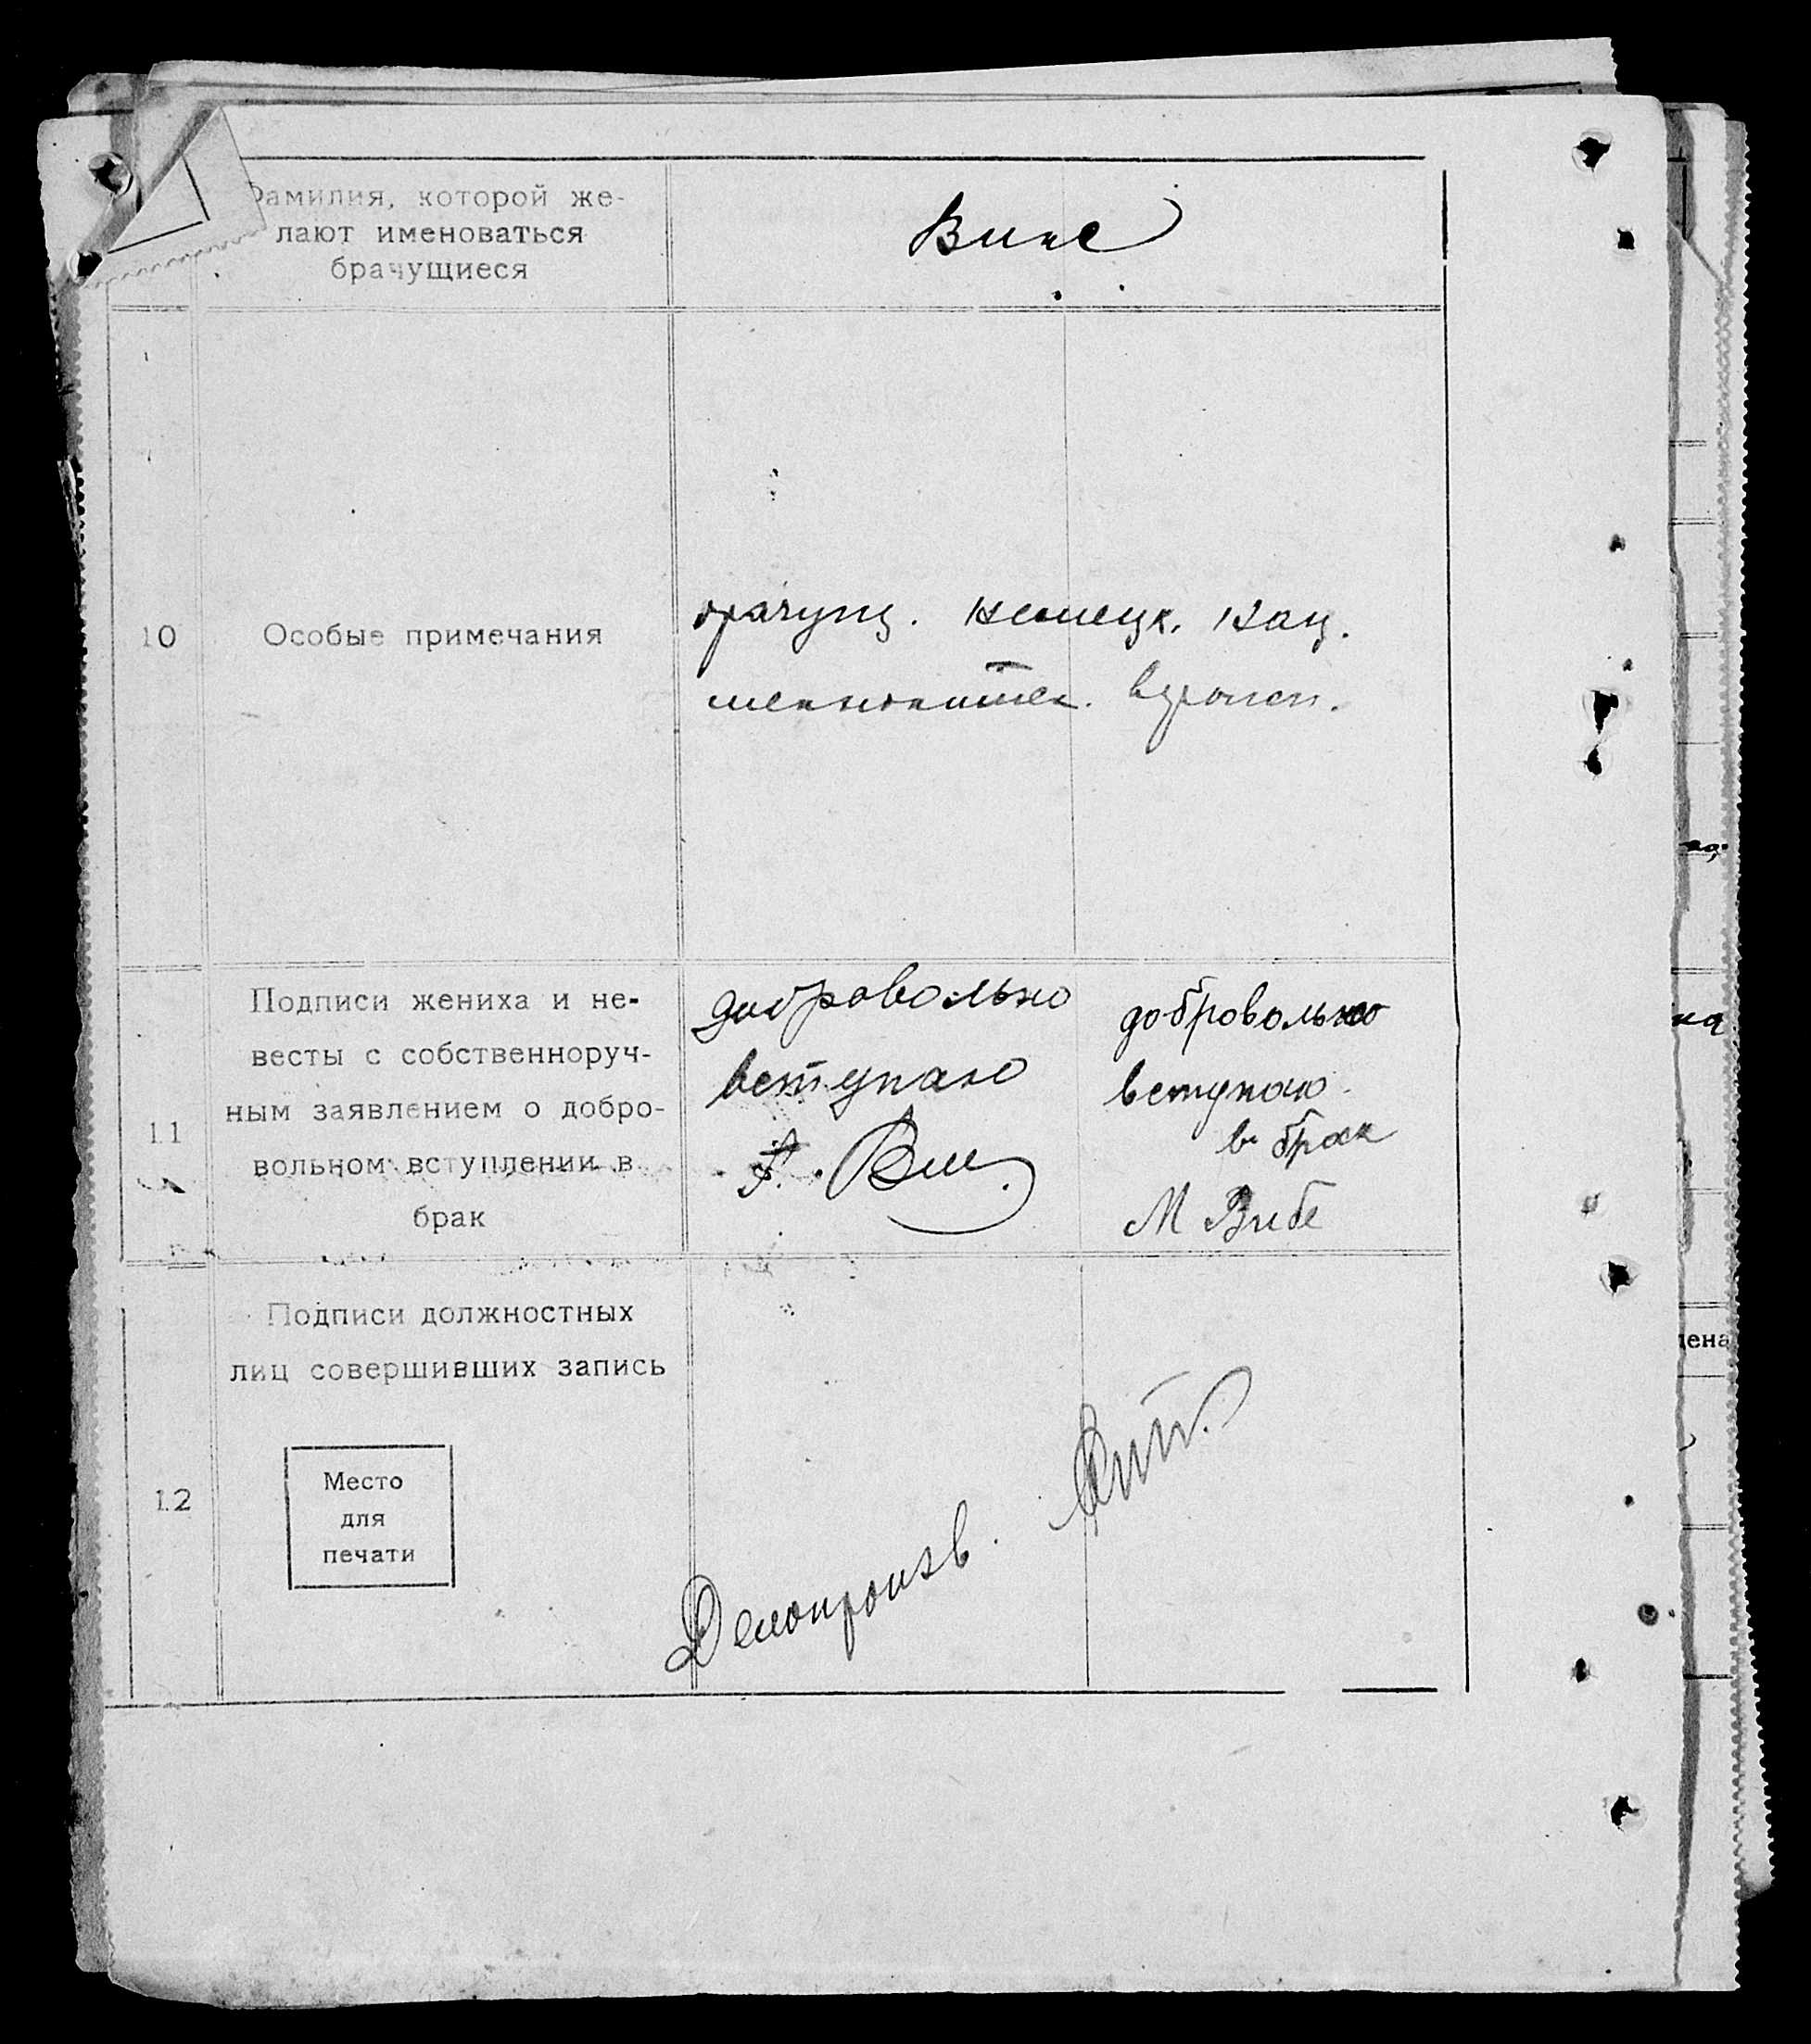 Фамилия, которой же-
лают именоваться
брачущиеся
Винс
10
Особые примечания
брачущ. немецк. нац.
меннонитск.
11
Подписи жениха и не-
весты с собственноруч-
ным заявлением о добро-
вольном вступлении в
брак
добровольно
вступаю
добровольно
вступаю
в брак
М Вибе
12
Подписи должностных
лиц совершивших запись
Место
для
печати
Делопроизв.